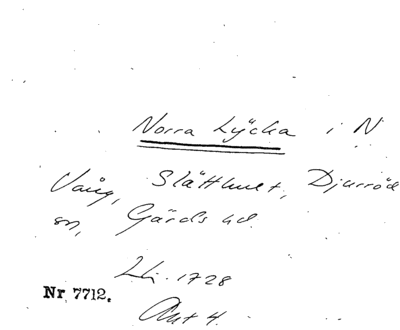 Norra Lycka i N
Vång, Slätthult, Djurröd
sn, Gärds hd.
Lt. 1728
Nr 7712.
Akt 4.